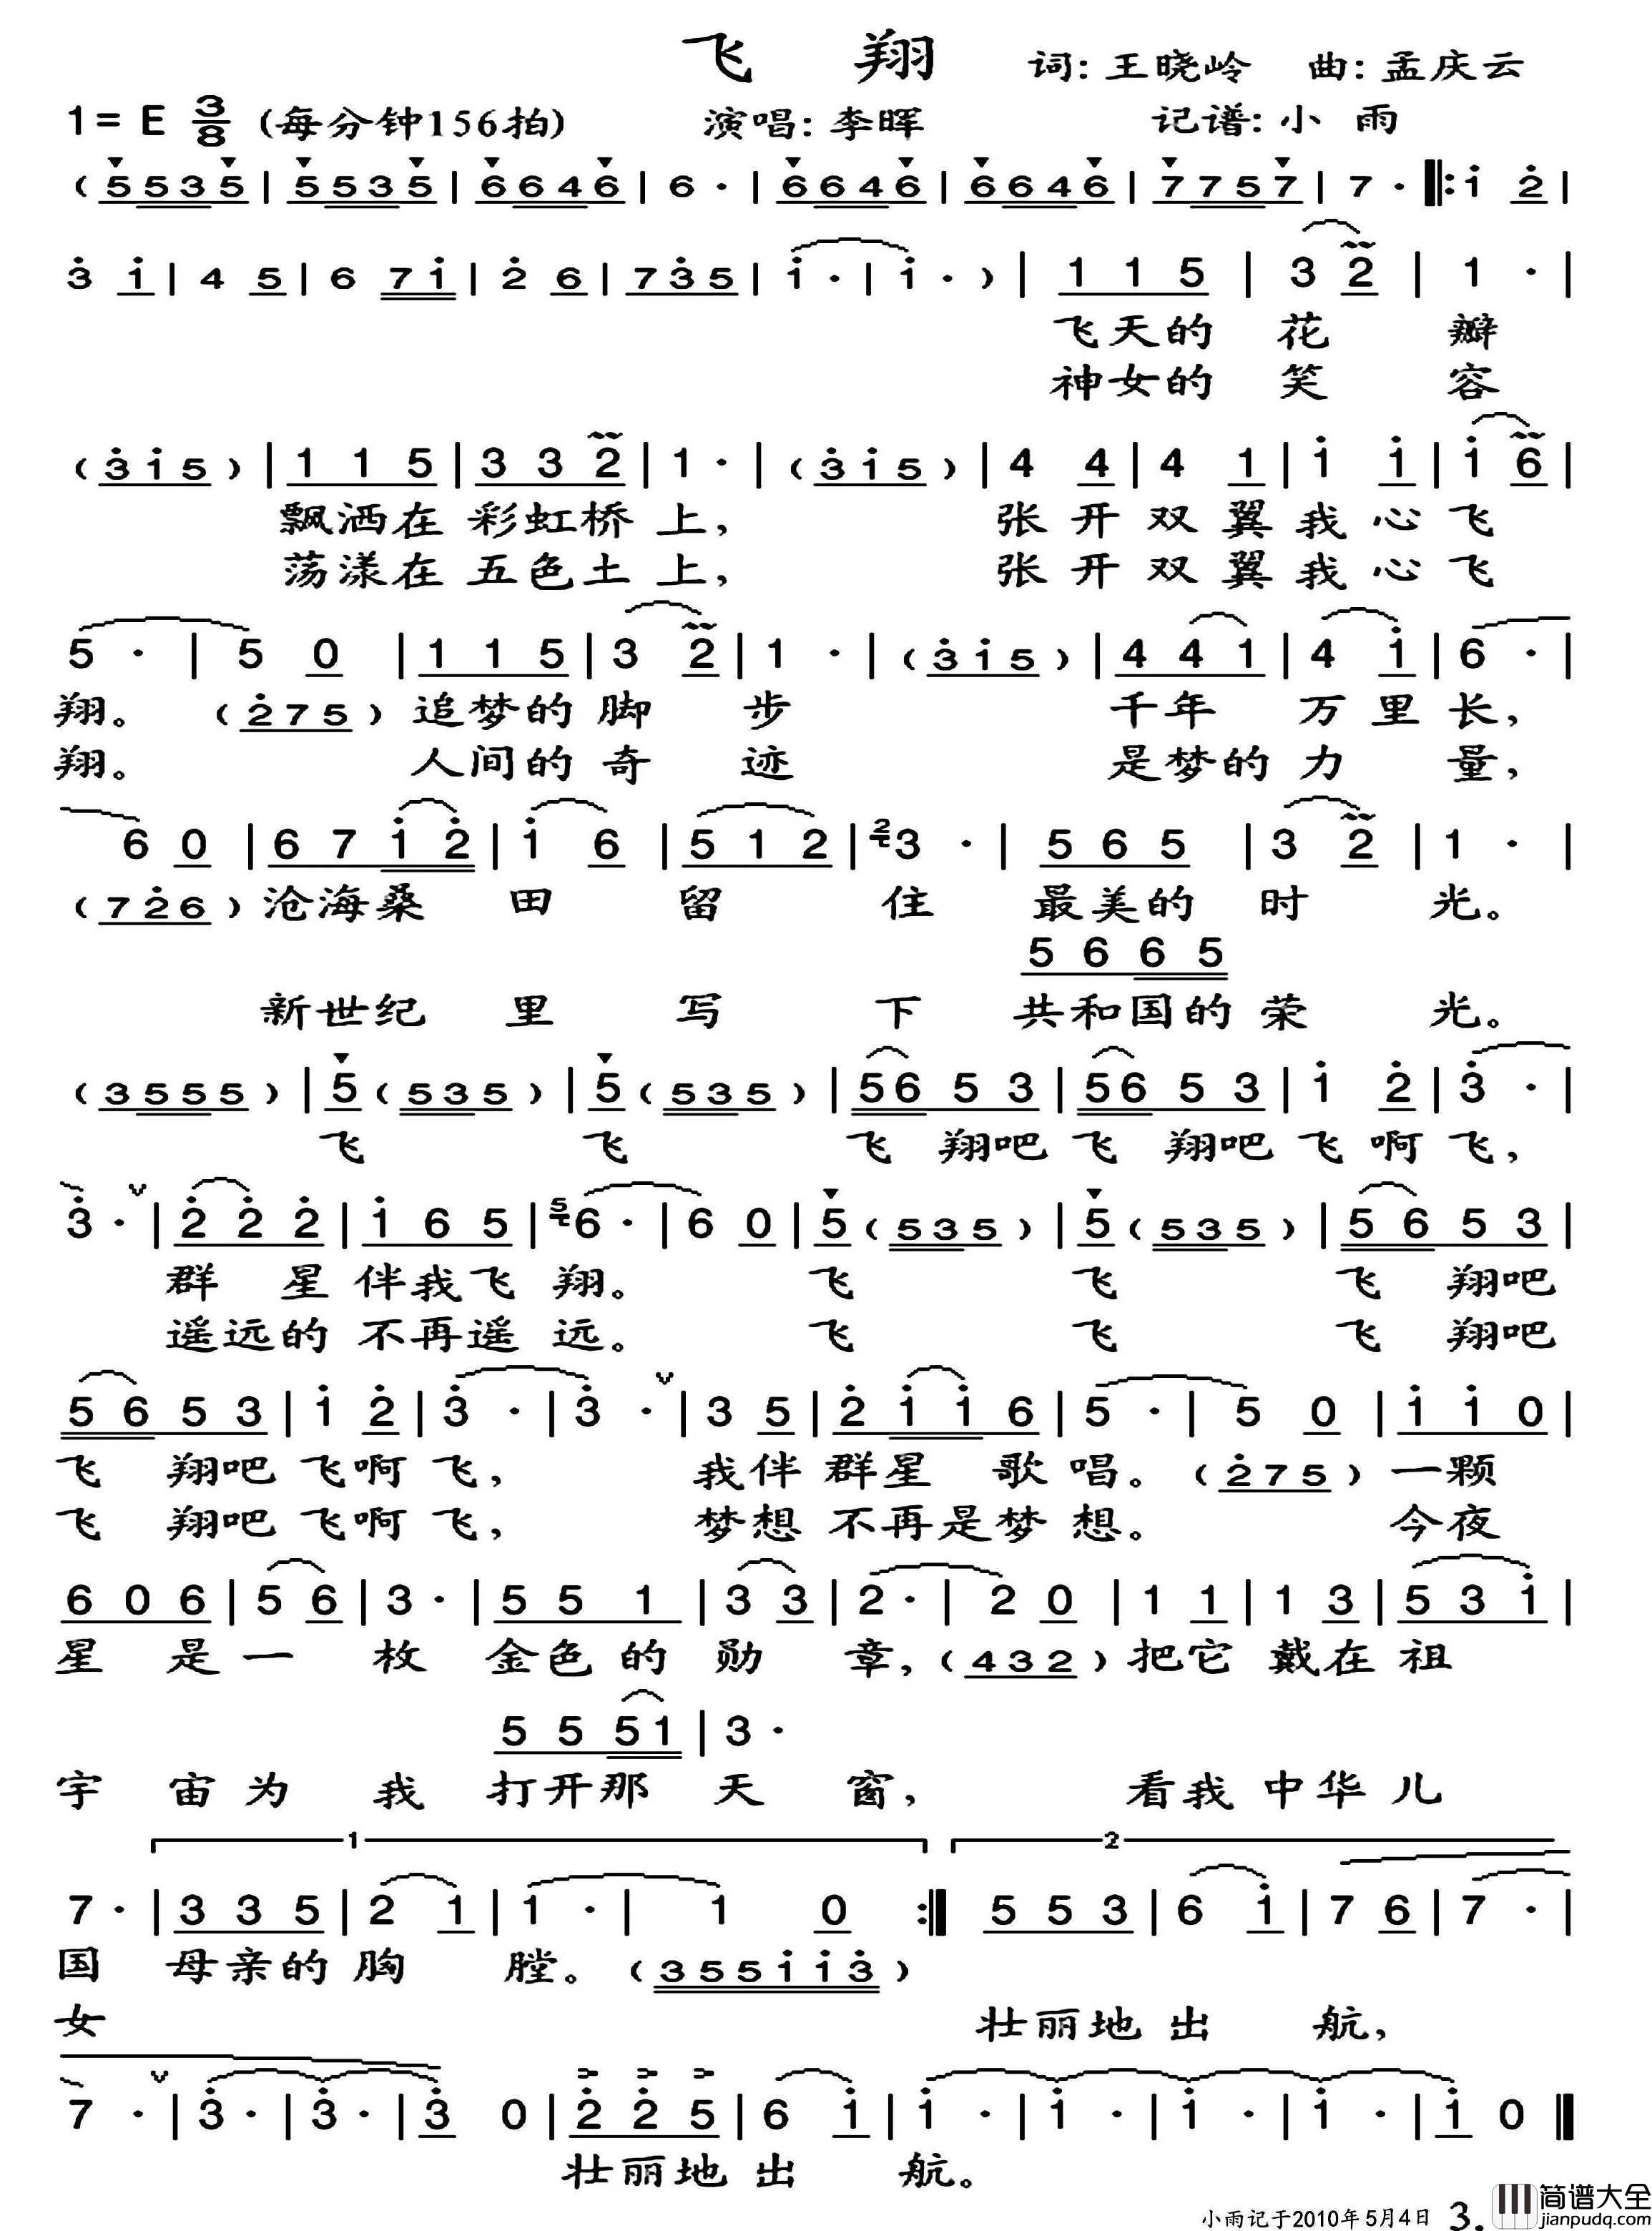 飞 翔 词: 王晓岭 曲: 孟庆云
1= E 3/8 (每分钟156拍) 演唱: 李晖 记谱: 小 雨
( 5 5 3 5 | 5 5 3 5 | 6 6 4 6 | 6 · | 6 6 4 6 | 6 6 4 6 | 7 7 5 7 | 7 · ‖: i 2 |
3 i | 4 5 | 6 7 i | 2 6 | 7 3 5 | i · | i · ) | 1 1 5 | 3 2 | 1 · |
飞天的 花 瓣
神女的 笑 容
( 3 i 5 ) | 1 1 5 | 3 3 2 | 1 · | ( 3 i 5 ) | 4 4 | 4 1 | i i | i 6 |
飘洒在 彩虹桥 上, 张 开 双 翼 我 心 飞
荡漾在 五色土 上, 张 开 双 翼 我 心 飞
5 · | 5 0 | 1 1 5 | 3 2 | 1 · | ( 3 i 5 ) | 4 4 1 | 4 i | 6 · |
翔。 ( 2 7 5 ) 追梦的 脚 步 千年 万 里 长,
翔。 人间的 奇 迹 是梦的 力 量,
6 0 | 6 7 i 2 | i 6 | 5 1 2 | 2 3 · | 5 6 5 | 3 2 | 1 · |
( 7 2 6 ) 沧海桑 田 留 住 最美的 时 光。
5 6 6 5
新世纪 里 写 下 共和国的 荣 光。
( 3 5 5 5 ) | 5 ( 5 3 5 ) | 5 ( 5 3 5 ) | 5 6 5 3 | 5 6 5 3 | i 2 | 3 · |
飞 飞 飞 翔吧 飞 翔吧 飞 啊 飞,
3 · | 2 2 2 | i 6 5 | 5 6 · | 6 0 | 5 ( 5 3 5 ) | 5 ( 5 3 5 ) | 5 6 5 3 |
群 星 伴我飞 翔。 飞 飞 飞 翔吧
遥远的 不再遥 远。 飞 飞 飞 翔吧
5 6 5 3 | i 2 | 3 · | 3 · | 3 5 | 2 i i 6 | 5 · | 5 0 | i i 0 |
飞 翔吧 飞啊 飞, 我伴 群星 歌 唱。 ( 2 7 5 ) 一颗
飞 翔吧 飞啊 飞, 梦想 不再是梦 想。 今夜
6 0 6 | 5 6 | 3 · | 5 5 1 | 3 3 | 2 · | 2 0 | 1 1 | 1 3 | 5 3 i |
星 是一 枚 金色的 勋 章, ( 4 3 2 ) 把它 戴在 祖
5 5 5 1 | 3 ·
宇 宙为 我 打开那 天 窗, 看我 中华 儿
1 2
7 · | 3 3 5 | 2 1 | 1 · | 1 0 :‖ 5 5 3 | 6 i | 7 6 | 7 · |
国 母亲的 胸 膛。 ( 3 5 5 i i 3 )
女 壮丽地 出 航,
7 · | 3 · | 3 · | 3 0 | 2 2 5 | 6 i | i · | i · | i · | i · | i 0 ‖
壮丽地 出 航。
小雨记于2010年5月4日 3.
简谱大全
jianpudq.com